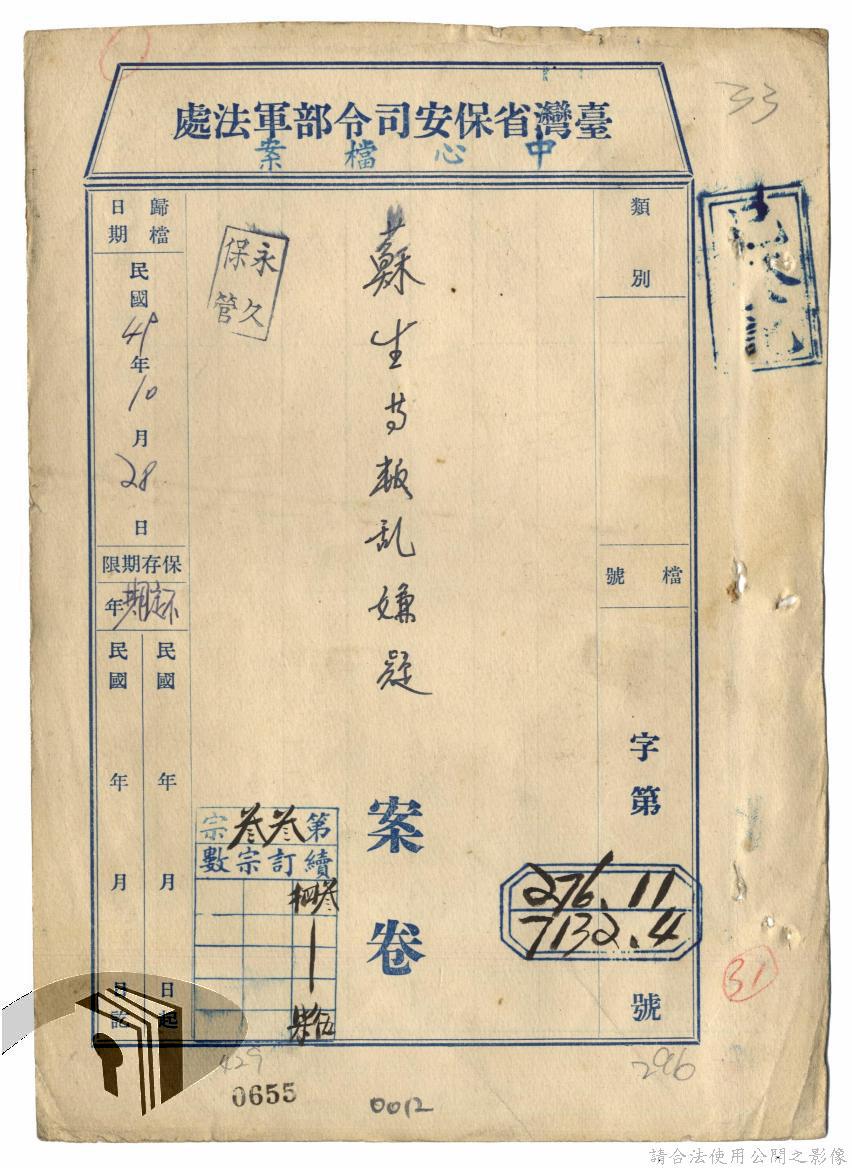 33
臺灣省保安司令部軍法處
中心檔案
類別
檔號
字第
276.11
7132.4
號
蘇生等叛乱嫌疑
案卷
永久
保管
第叁叁宗
續訂宗數
歸檔
日期
民國41年10月28日
保存期限
不定期年
民國 年 月 日起
民國 年 月 日訖
31
429
296
0655
0012
請合法使用公開之影像